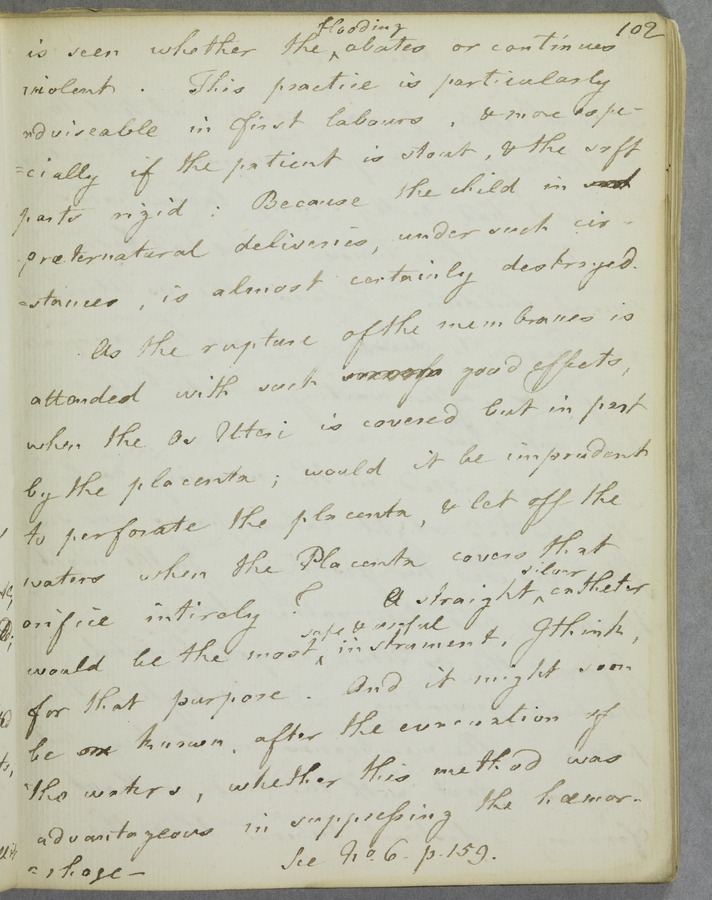 102
is seen whether the ^flooding abates or continues
violent. This practice is particularly
adviseable in first labours, & more espe-
=cially if the patient is stout, & the soft
parts rigid: Because the child in
præternatural deliveries, under such cir-
=stances, is almost certainly destroyed.
As the rupture of the membranes is
attended with such good effects,
when the Os Uteri is covered but in part
by the placenta; would it be imprudent
to perforate the placenta, & let off the
waters when the Placenta covers that
orifice intirely? A straight ^silver catheter
would be the most ^safe & useful instrument, I think,
for that purpose. And it might soon
be known, after the evacuation of
the waters, whether this method was
advantageous in suppressing the hæmor-
=rhage-
See No. 6. p. 159.